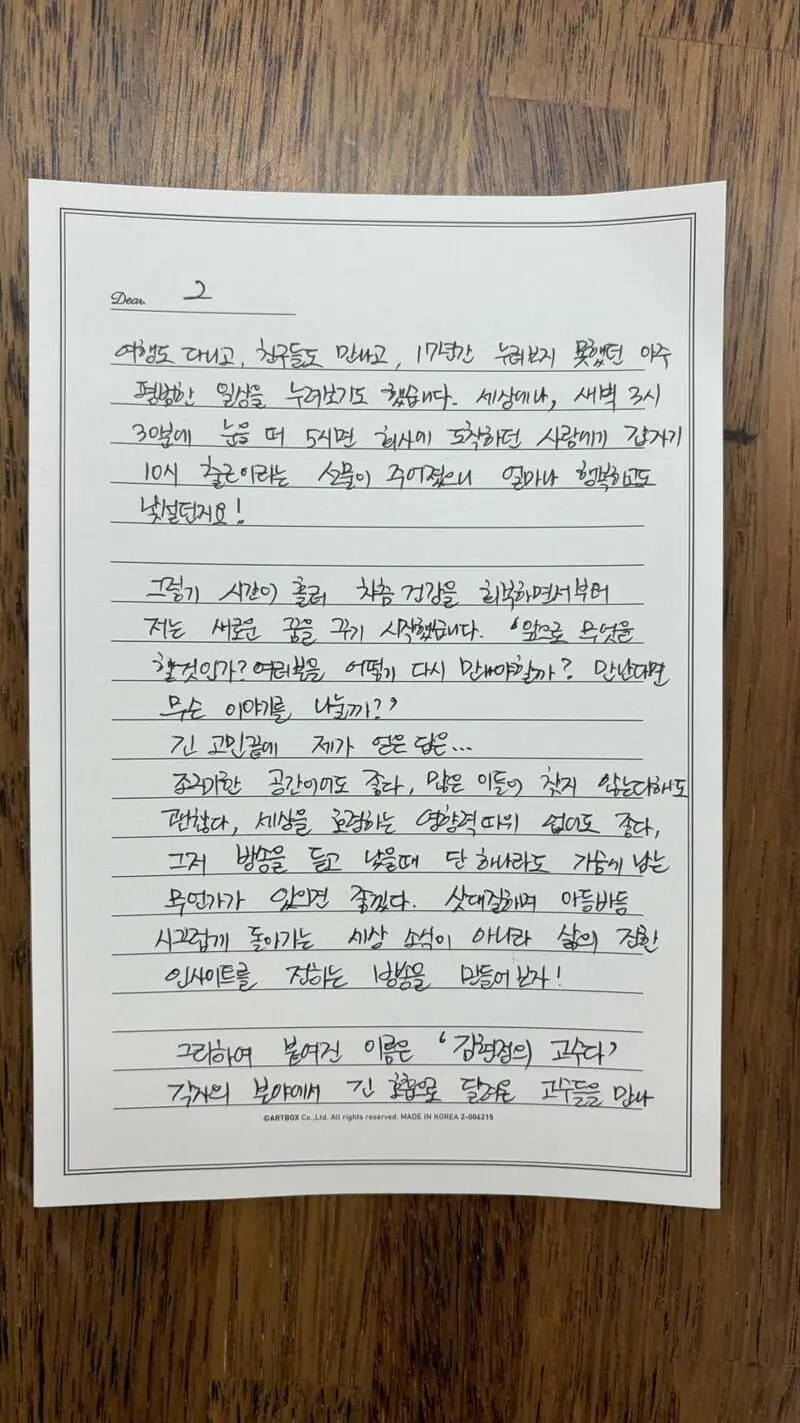 Dear. 2
여행도 다니고, 친구들도 만나고, 17년간 누려보지 못했던 아주
평범한 일상을 누려보기도 했습니다. 세상에나, 새벽 3시
30분에 눈을 떠 5시면 회사에 도착하던 사람에게 갑자기
10시 출근이라는 선물이 주어졌으니 얼마나 행복하고도
낯설던지요!
그렇게 시간이 흘러 차츰 건강을 회복하면서부터
저는 새로운 꿈을 꾸기 시작했습니다. '앞으로 무엇을
할것인가? 여러분을 어떻게 다시 만나야할까? 만난다면
무슨 이야기를 나눌까?'
긴 고민끝에 제가 얻은 답은...
조그마한 공간이어도 좋다, 많은 이들이 찾지 않는다해도
괜찮다, 세상을 호령하는 영향력따위 없어도 좋다,
그저 방송을 듣고 났을때 단 하나라도 가슴에 남는
무언가가 있으면 좋겠다. 삿대질하며 아등바등
시끄럽게 돌아가는 세상 소식이 아니라 삶의 전환
인사이트를 전하는 방송을 만들어보자!
그리하여 붙여진 이름은 '김현정의 고수다'
각자의 분야에서 긴 호흡으로 달려온 고수들을 만나
©ARTBOX Co.,Ltd. All rights reserved. MADE IN KOREA 2-006215